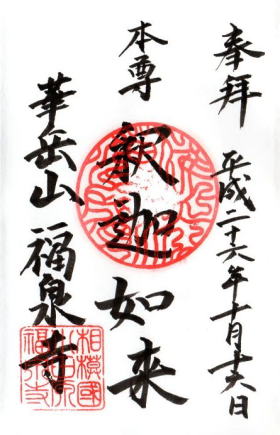 奉拝
平成二十六年十月十六日
本尊
釈迦如来
華岳山
福泉寺
相模國